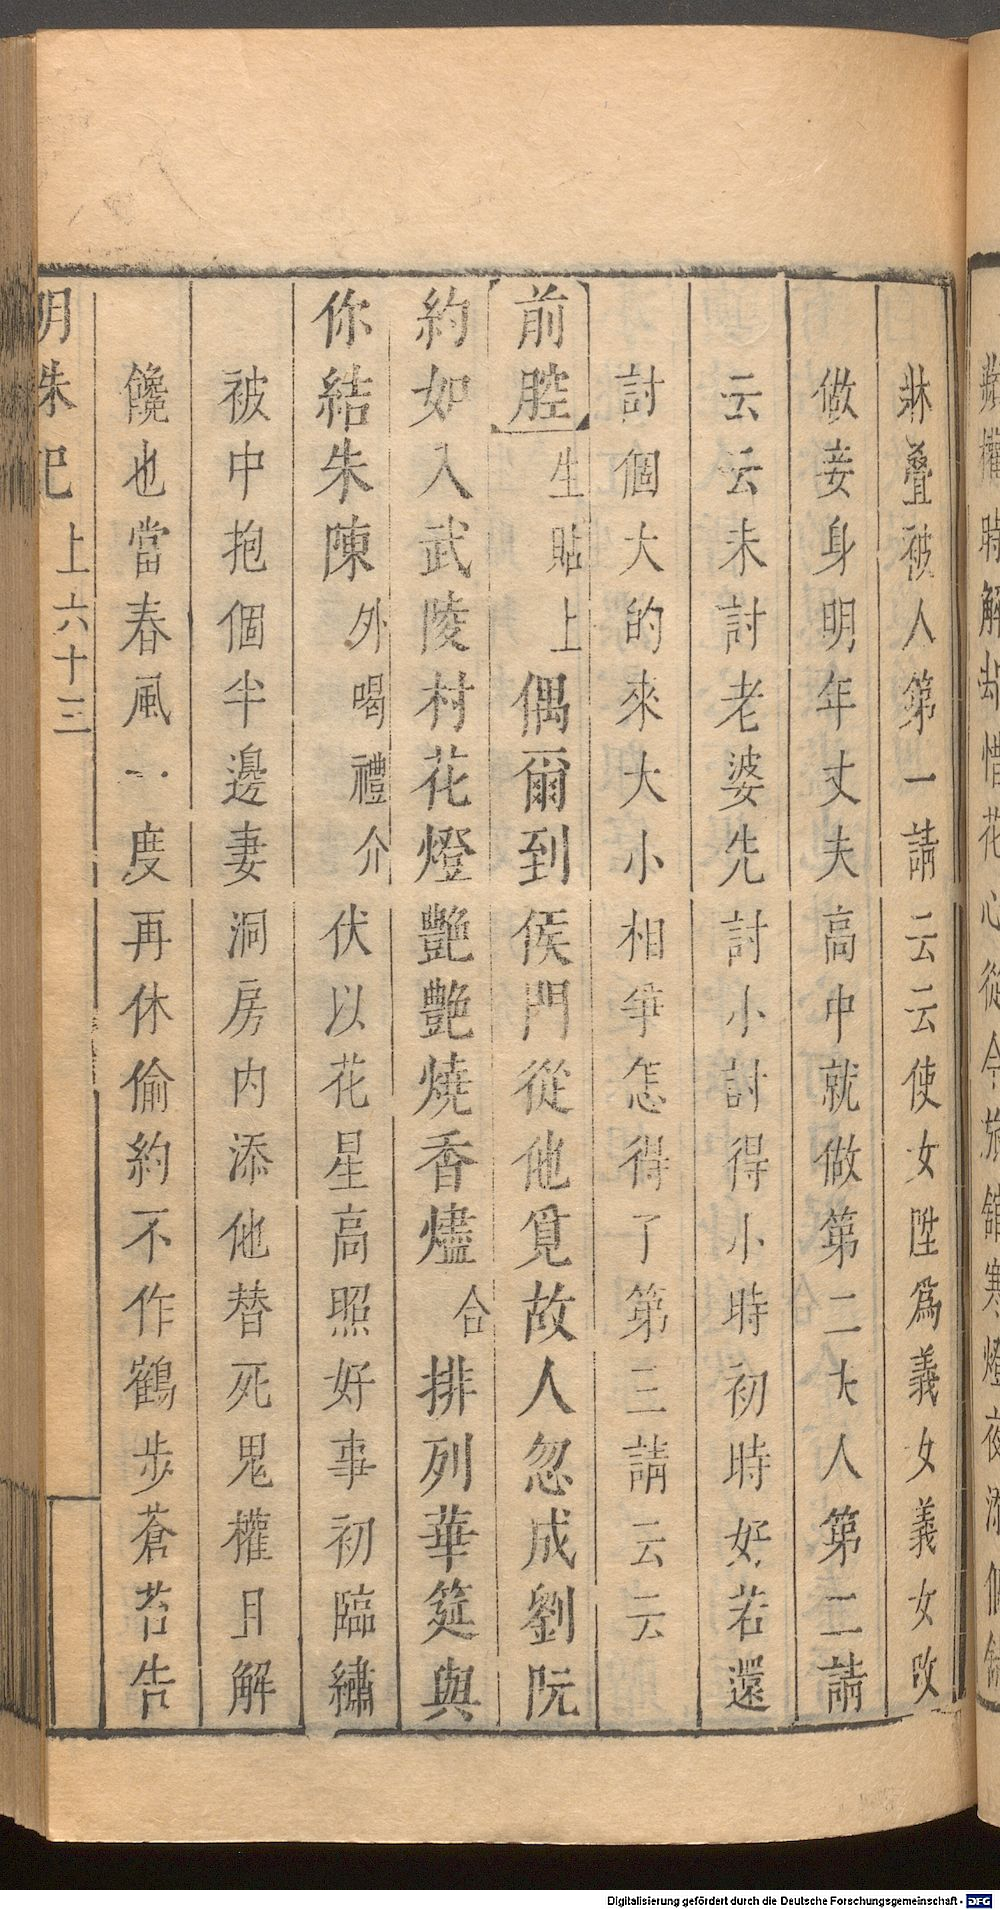 牀疊被人第一請云云使女陞爲義女義女改
做妾身明年丈夫高中就做第二大人第二請
云云未討老婆先討小討得小時初時好若還
討個大的來大小相爭怎得了第三請云云
前腔生貼上偶爾到侯門從他覓故人忽成劉阮
約如入武陵村花燈艷艷燒香燼合排列華筵與
你結朱陳外喝禮介伏以花星高照好事初臨繡
被中抱個半邊妻洞房内添他替死鬼權且解
饞也當春風一度再休偷約不作鶴步蒼苔告
明珠記 上六十三
時解 惜花心從今旅舘寒燈夜添
Digitalisierung gefördert durch die Deutsche Forschungsgemeinschaft - DFG